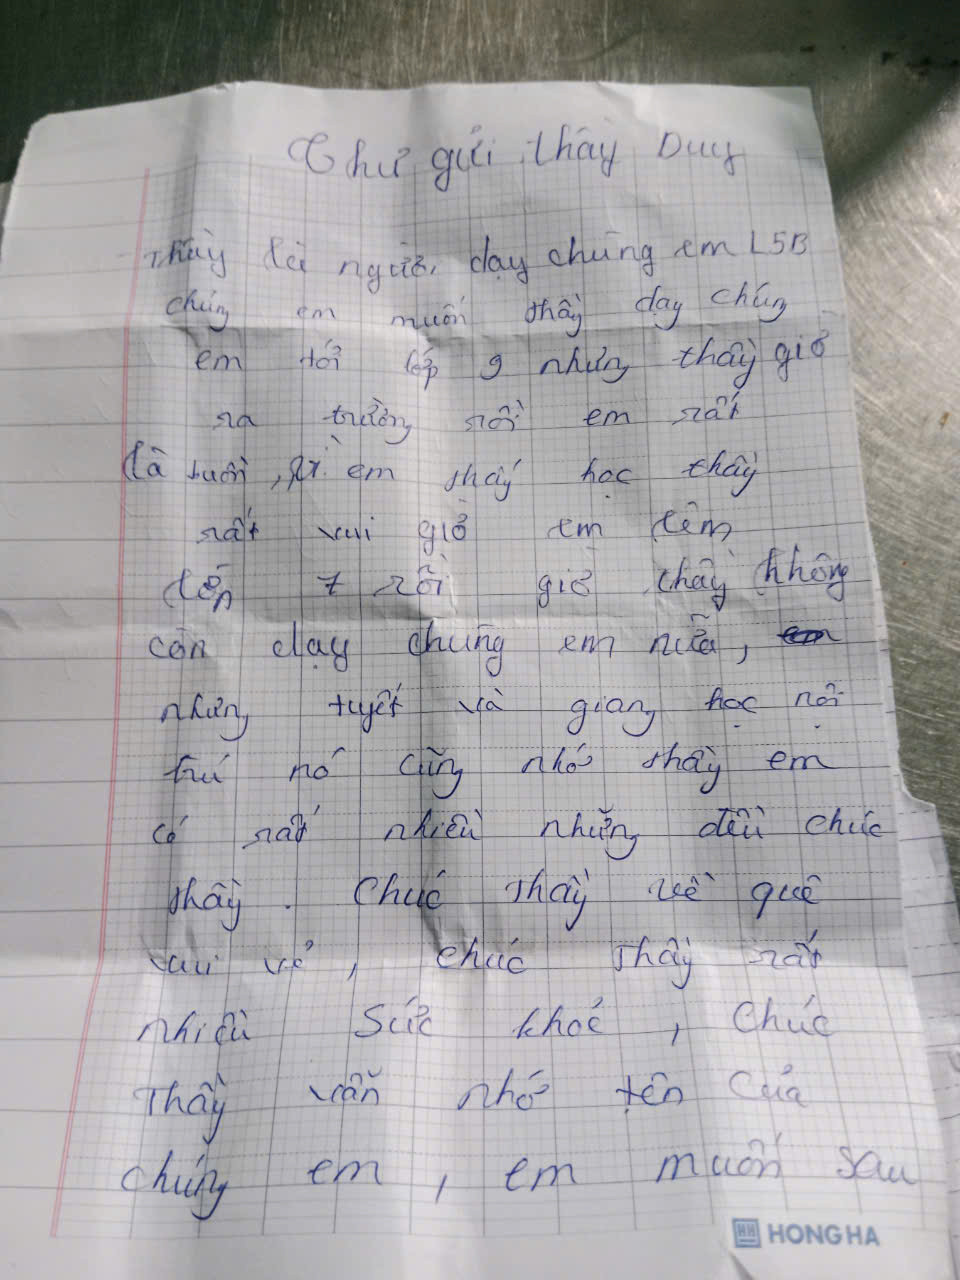 Thư gửi thầy Duy
Thầy là người dạy chúng em L5B
chúng em muốn thầy dạy chúng
em tới lớp 9 nhưng thầy giờ
ra trường rồi em rất
là buồn, vì em thấy học thầy
rất vui giờ em lên
lớp 7 rồi giờ thầy không
còn dạy chúng em nữa,
nhưng tuyết và giang học nội
trú nó cũng nhớ thầy em
có rất nhiều những điều chúc
thầy. Chúc thầy về quê
vui vẻ, chúc thầy rất
nhiều sức khoẻ, Chúc
Thầy vẫn nhớ tên của
chúng em, em muốn sau
HONG HA